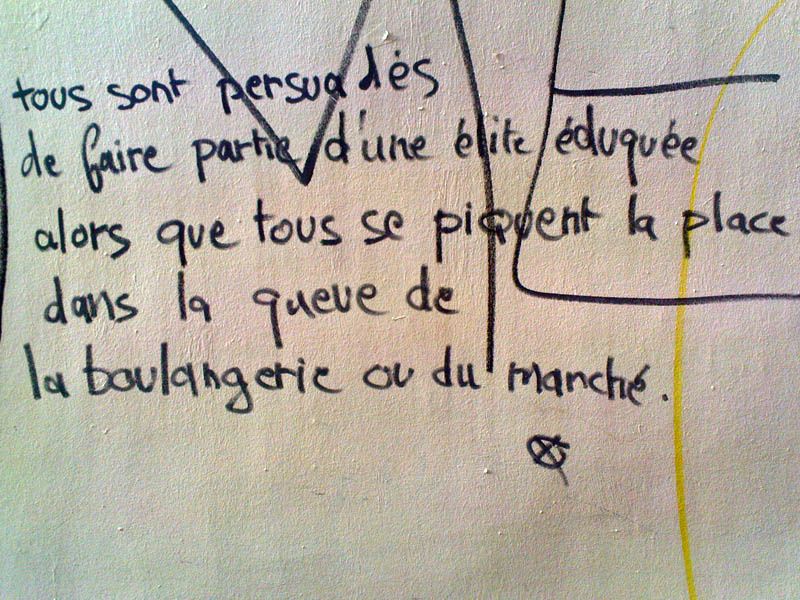 tous sont persuadés
de faire partie d'une élite éduquée
alors que tous se piquent la place
dans la queue de
la boulangerie ou du manché.